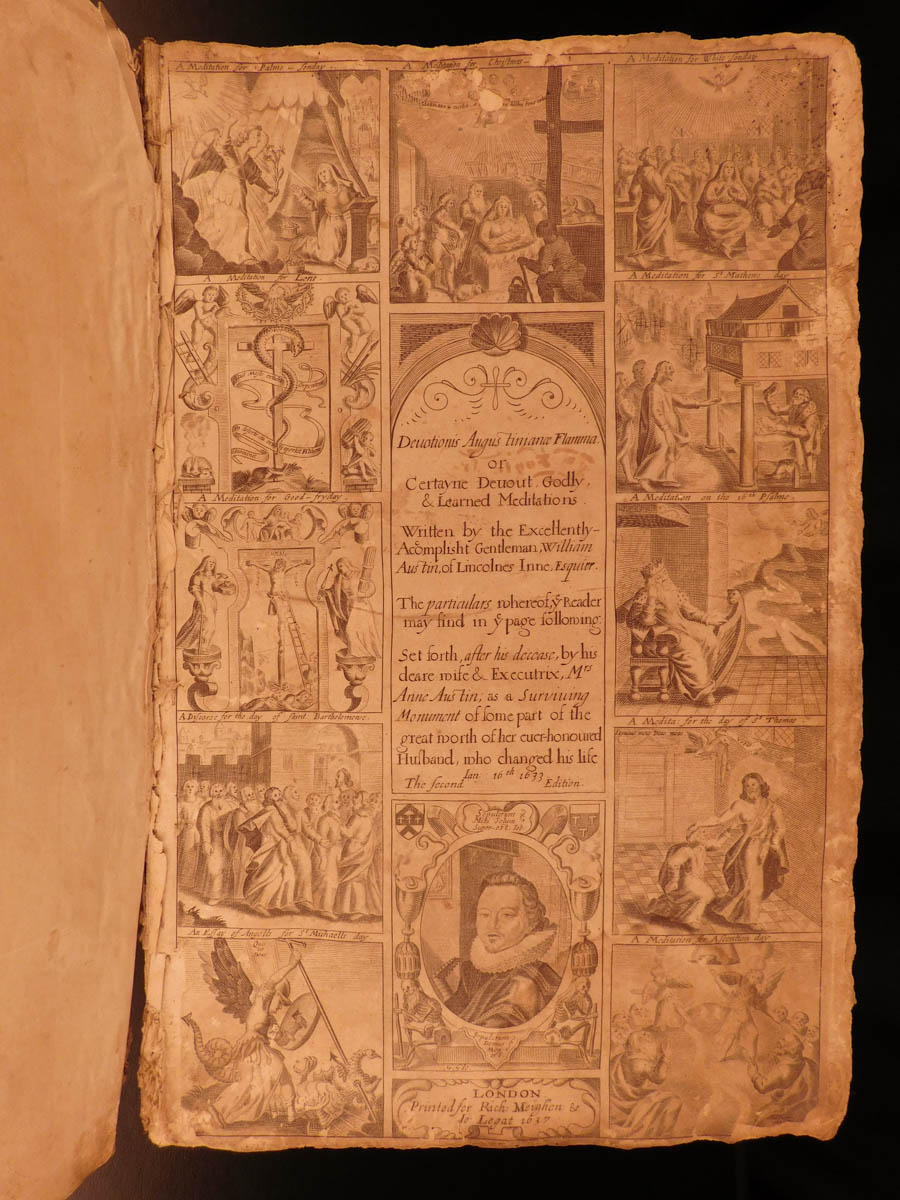 A Meditation for Palme-sonday.
A Meditation for Christmas
A Meditation for White sonday
A Meditation for Lent
A Meditation for St. Mathews day
A Meditation for Good-fryday
A Meditation on the 16th Psalme
A Discorse for the day of saint Bartholomewe.
A Medita: for the day of St. Thomas
Dominus meus Deus meus
An Essay of Angells for St. Michaells day
A Meditation for Ascention day
Devotionis Augustinianæ Flamma,
or
Certayne Devout, Godly,
& Learned Meditations.
Written by the Excellently-
Acomplisht Gentleman, William
Austin, of Lincolnes Inne, Esquier.
The particulars, whereof, ye Reader
may find in ye page following:
Set forth, after his decease, by his
deare wife & Executrix, Mrs
Anne Austin, as a Surviving
Monument of some part of the
great worth of her ever-honoured
Husband, who changed his life
Ian 16th 1633
The second Edition.
LONDON
Printed for Rich: Meighen &
Io Legat 1637